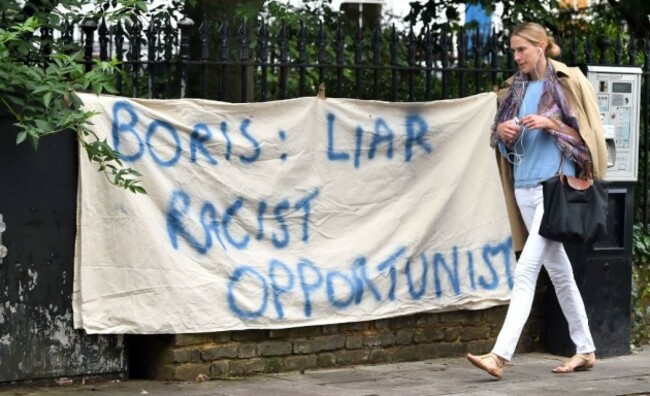 BORIS: LIAR
RACIST
OPPORTUNIST